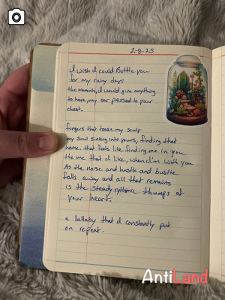 2-9-25
I wish I could Bottle you
for my rainy days
the moments, I would give anything
to have my ear pressed to your
chest.
fingers that tease my scalp
my soul sinking into yours, finding that
home. that feels like finding me in you.
the me that I like, when I'm with you
As the noise and hustle and bustle
falls away and all that remains
is the steady rythmic thumps of
your heart.
a lullaby that I constantly put
on repeat.
AntiLand